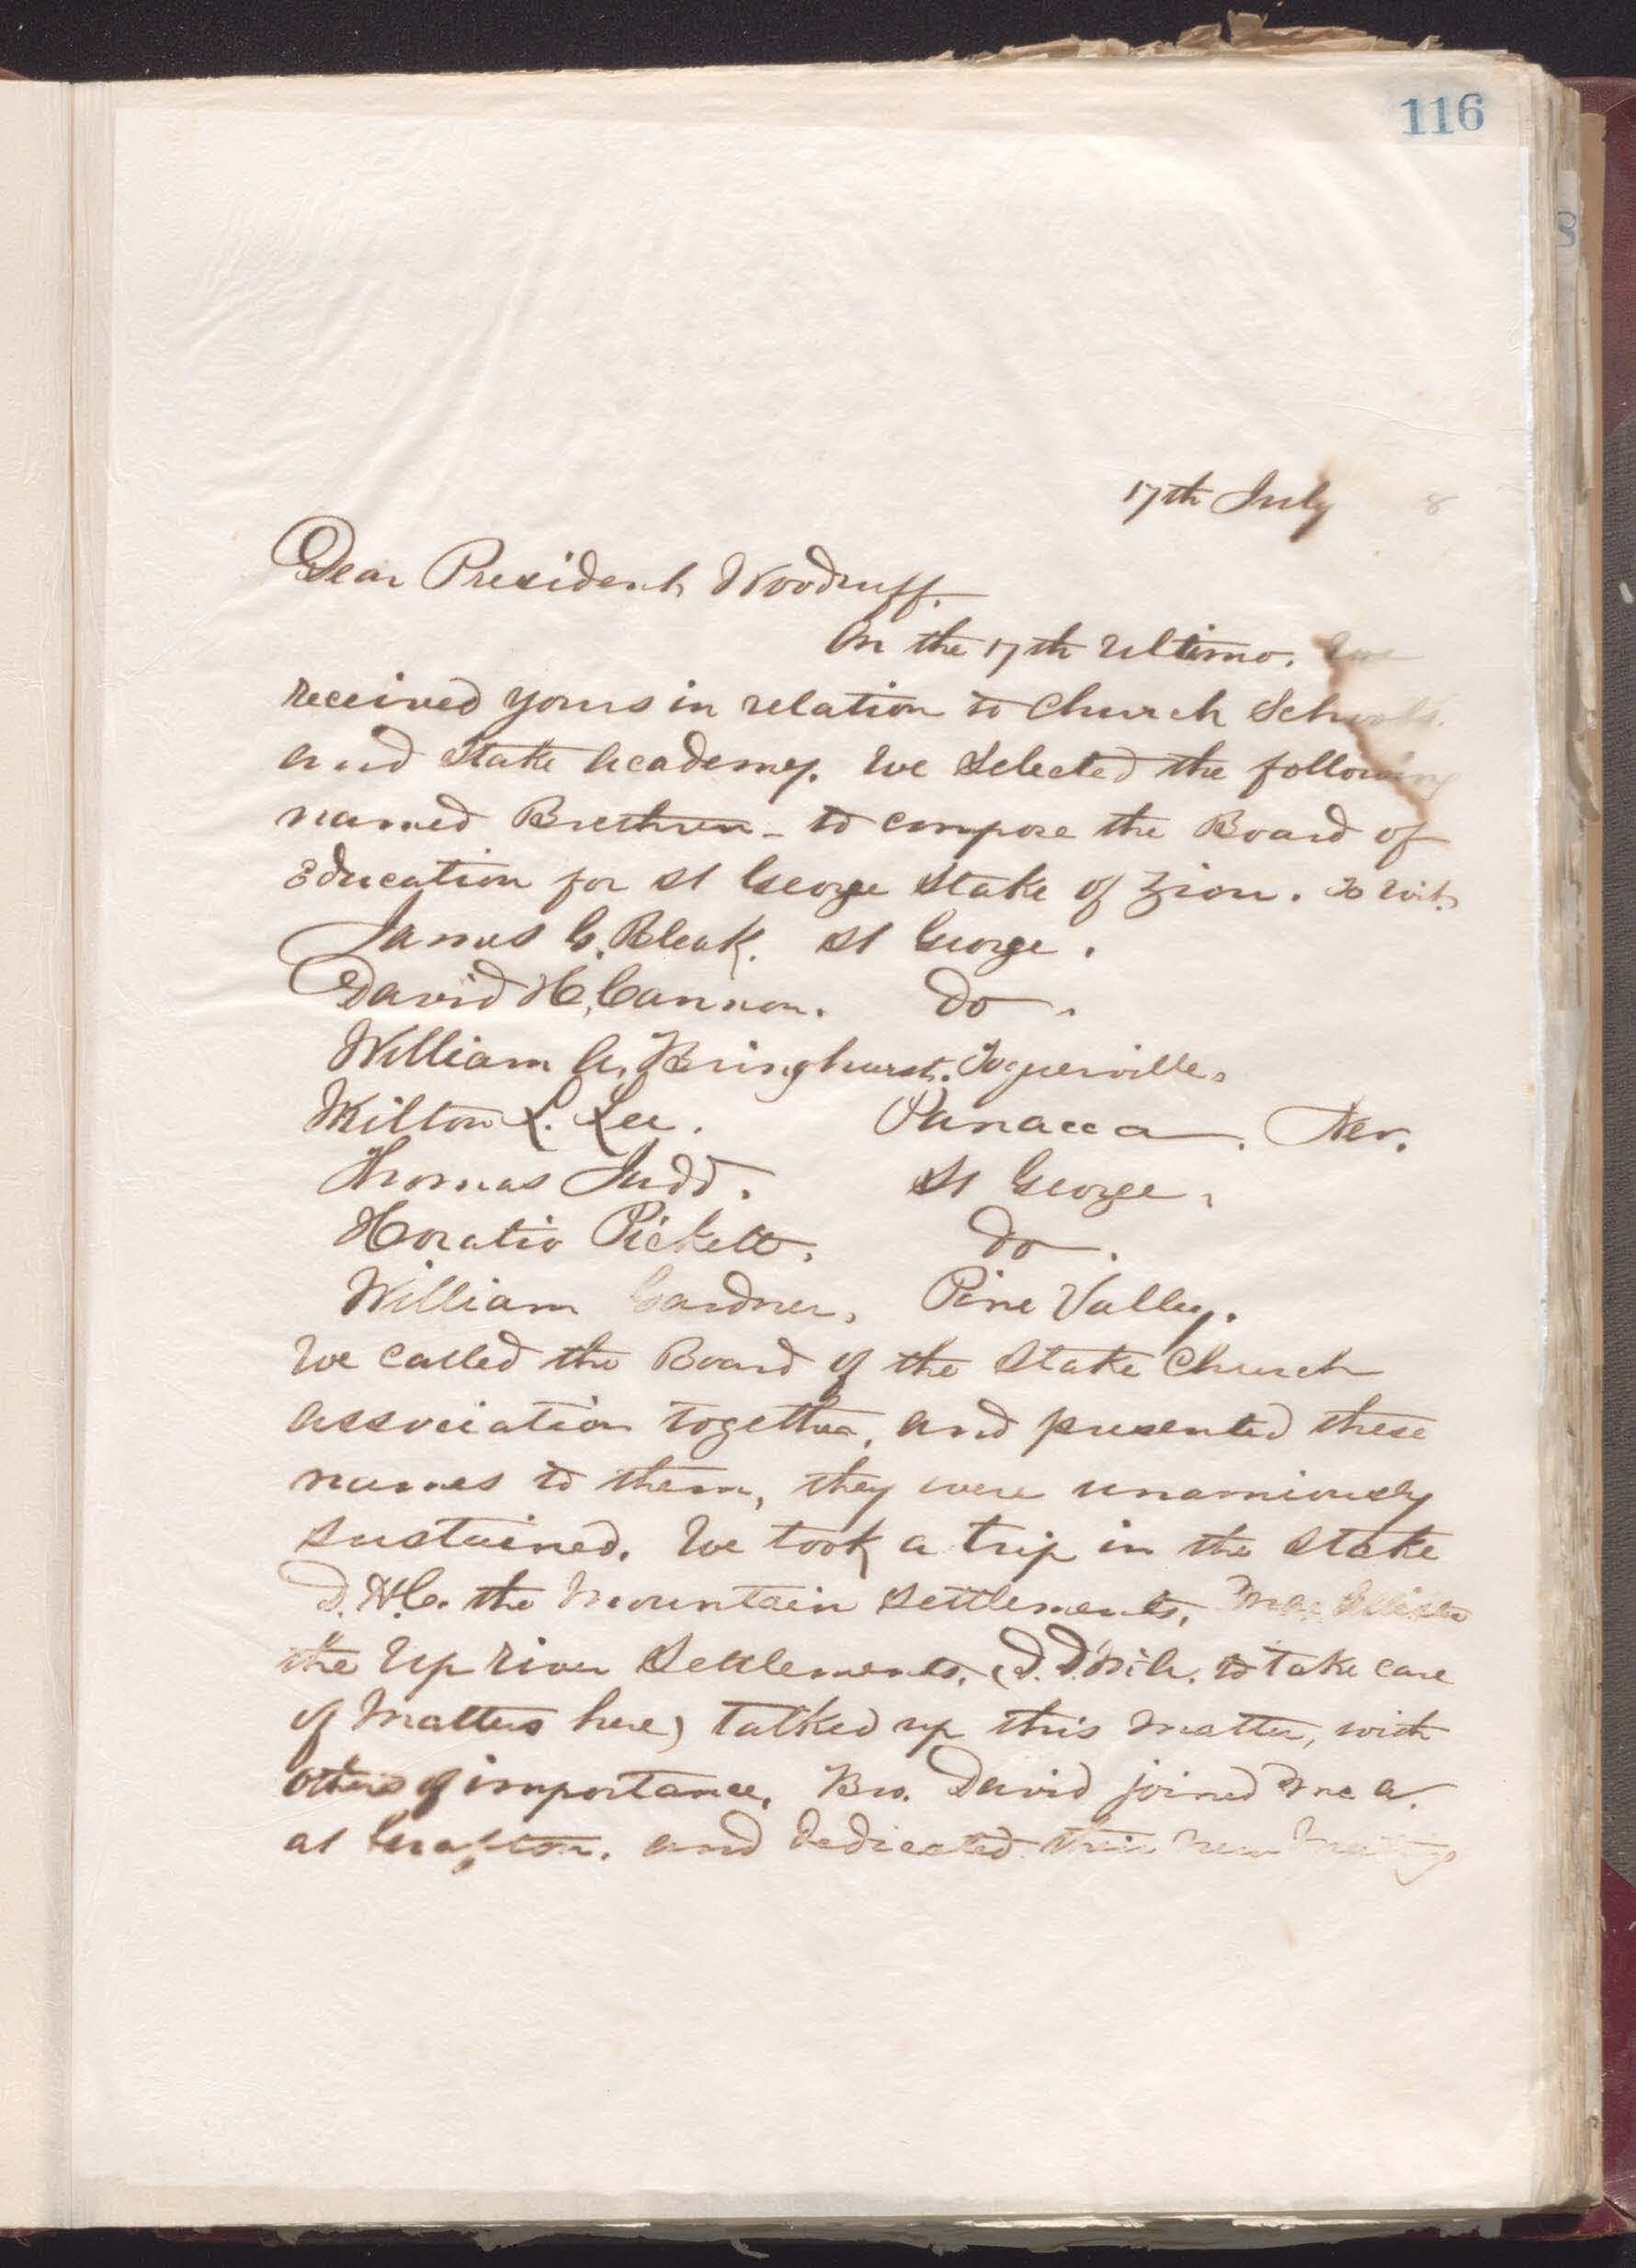 116
17th July 8
Dear President Woodruff.
On the 17th Ultimo. we
received yours in relation to Church Schools.
and Stake Academy. We Selected the following
named Brethren - to compose the Board of
Education for St George Stake of Zion. to wit,
James G. Bleak. St George.
David H. Cannon. do.
William A. Bringhurst. Toquerville.
Milton L. Lee. Panacca. Nev.
Thomas Judd. St George.
Horatio Pickett. do.
William Gardner. Pine Valley.
We called the Board of the Stake Church
association together, and presented these
names to them, they were unamiously
sustained. We took a trip in the Stake
D.H.C. the Mountain Settlements. MacAllister
the Up River Settlements. (D.D. to take care
of Matters here) talked up this matter, with
others of importance. Bro. David joined me
at Grafton. and dedicated their New Meeting